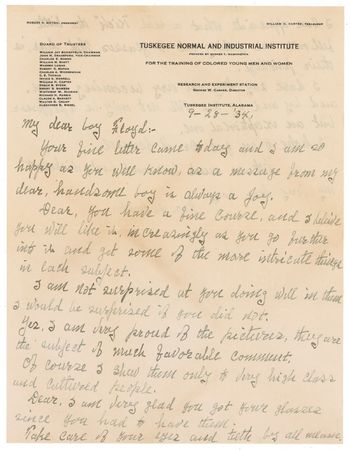 ROBERT R. MOTON, PRESIDENT
WILLIAM H. CARTER, TREASURER
BOARD OF TRUSTEES
TUSKEGEE NORMAL AND INDUSTRIAL INSTITUTE
FOUNDED BY BOOKER T. WASHINGTON
FOR THE TRAINING OF COLORED YOUNG MEN AND WOMEN
RESEARCH AND EXPERIMENT STATION
GEORGE W. CARVER, DIRECTOR
TUSKEGEE INSTITUTE, ALABAMA
9-28-34.
My dear boy Floyd:-
Your fine letter came today and I am so
happy as you well know, as a message from my
dear, handsome boy is always a joy.
Dear, you have a fine course, and I believe
you will like it, increasingly as you go further
into it and get some of the more intricate things
in each subject.
I am not surprised at you doing well in them
I would be surprised if you did not.
Yes, I am very proud of the pictures, they are
the subject of much favorable comment,
Of course I show them only to very high class
and cultured people.
Dear, I am very glad you got your glasses
since you had to have them.
Take care of your eyes and teeth by all means,